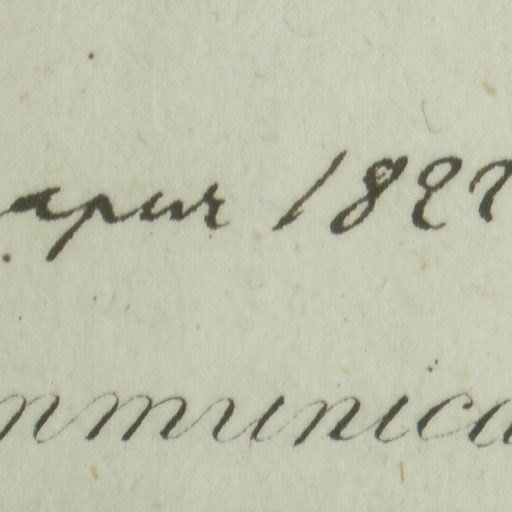 apur 182
nmunica